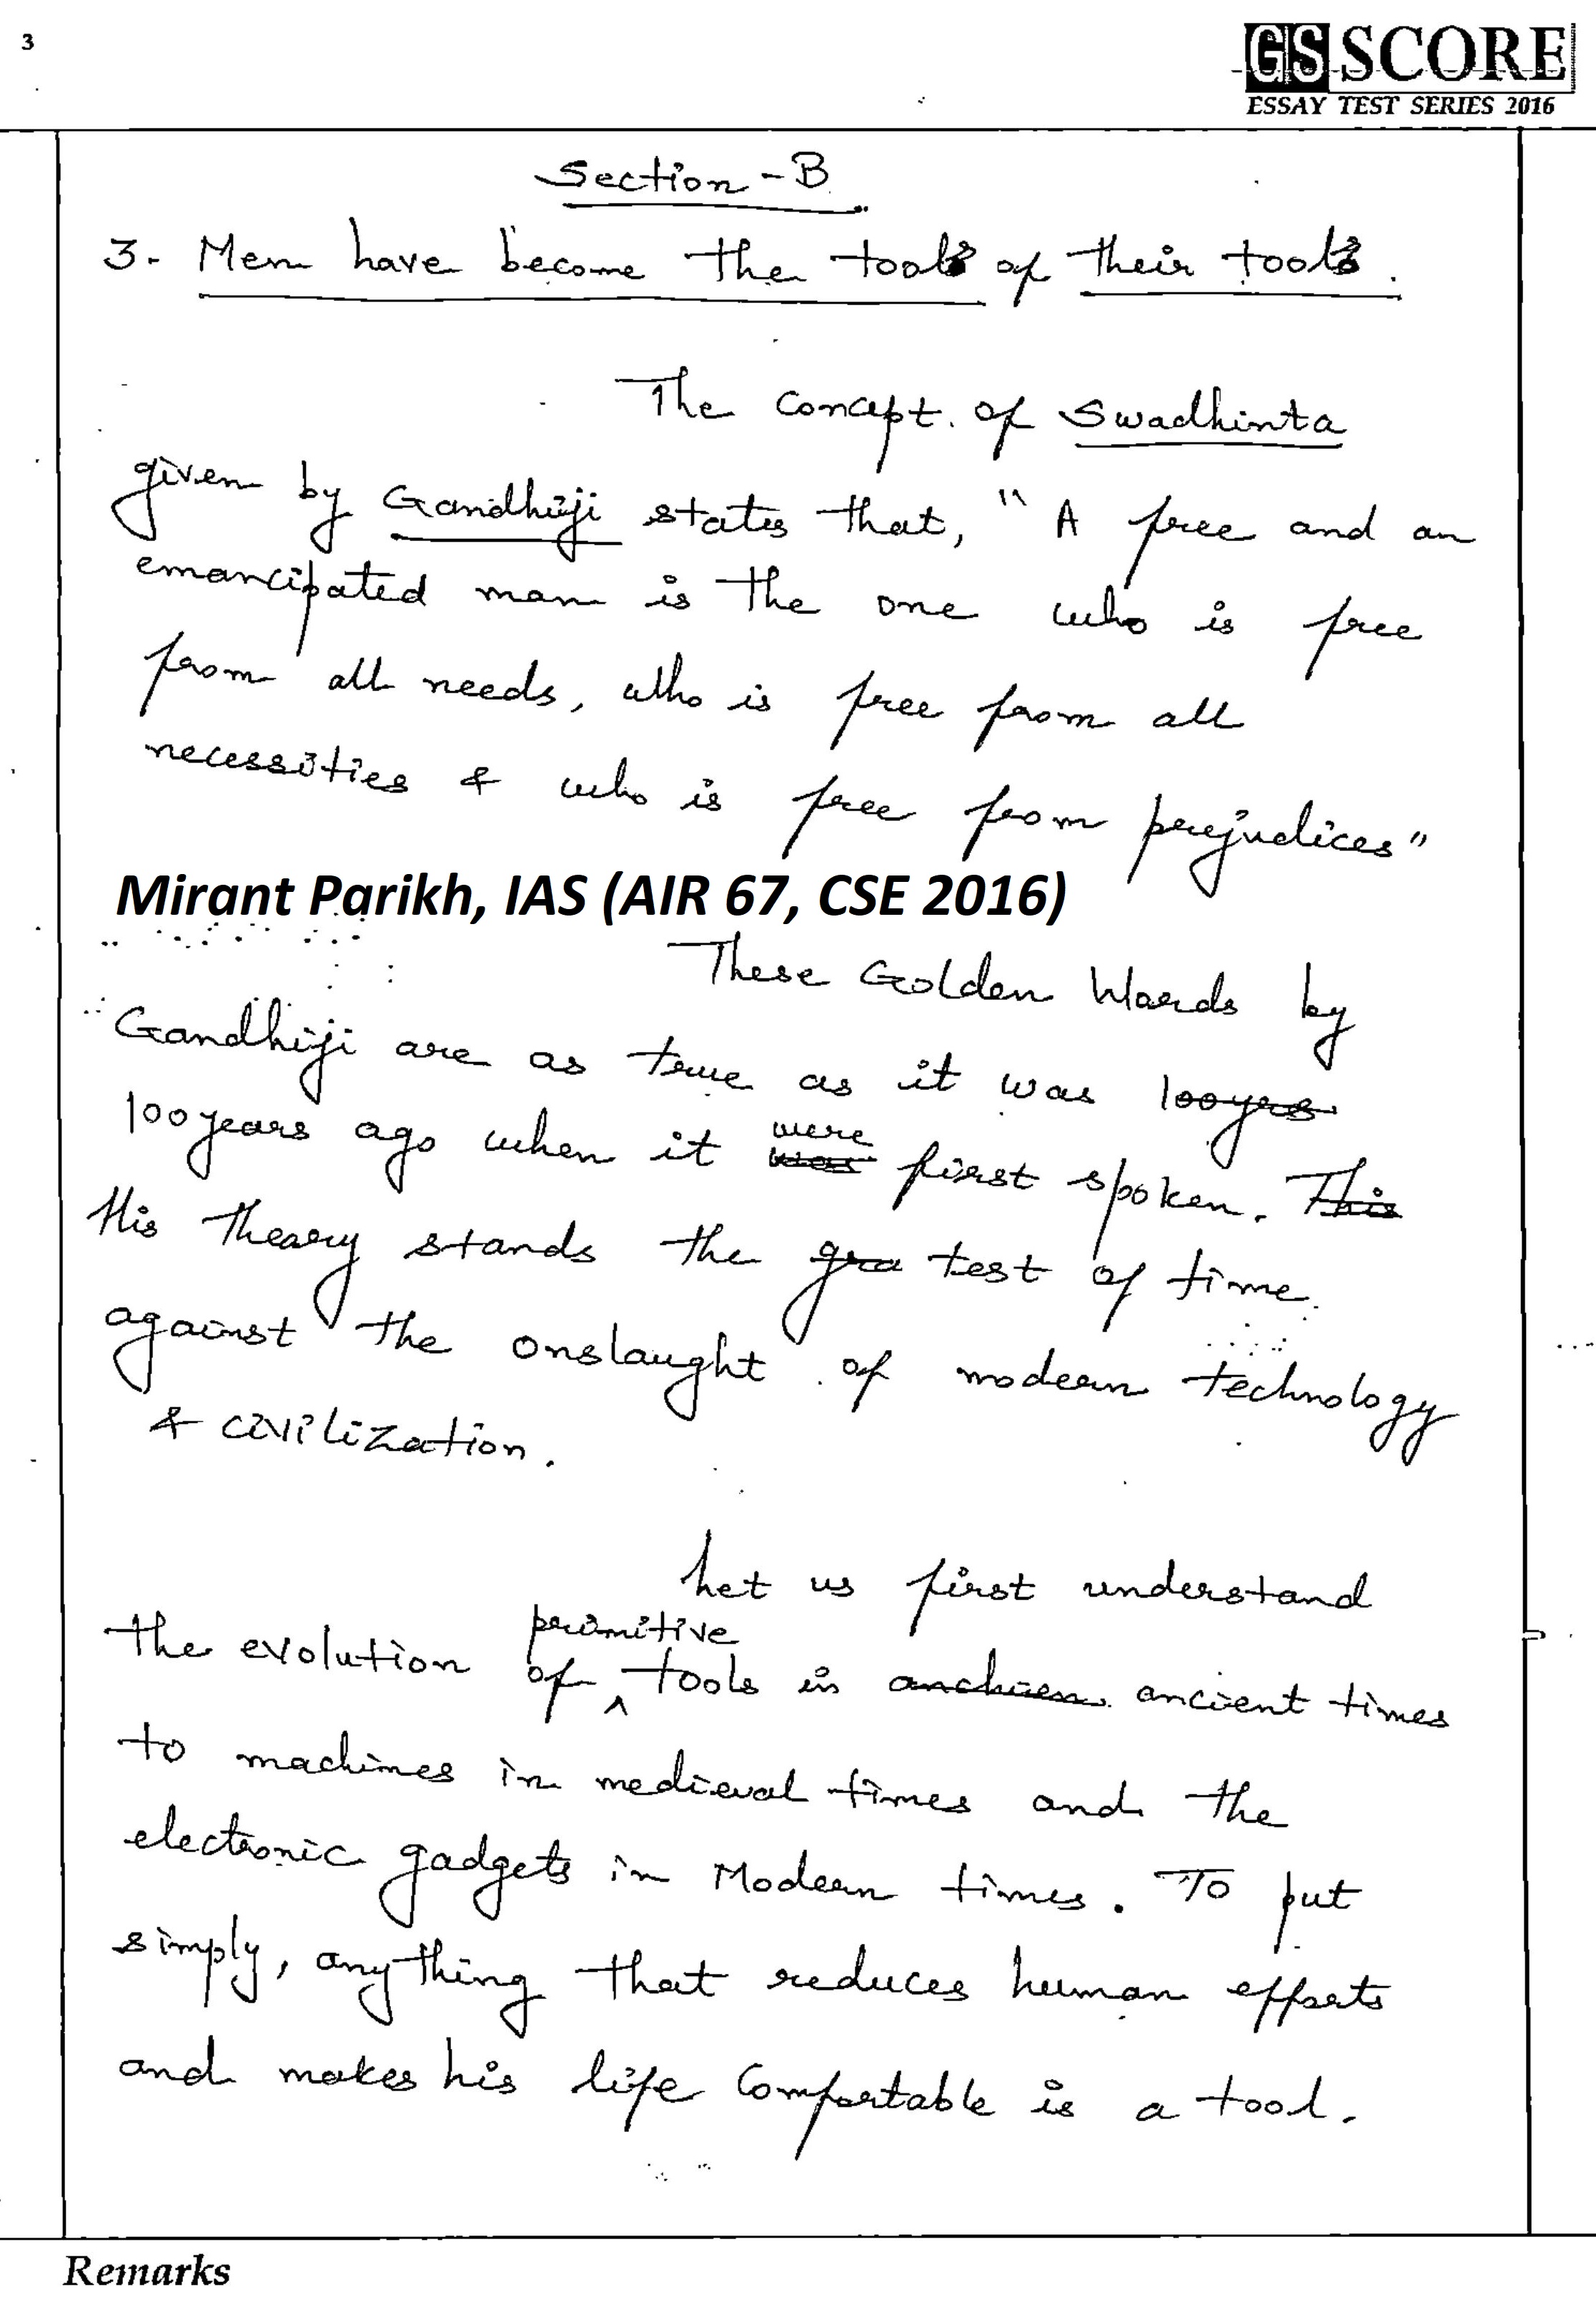 3
GS SCORE
ESSAY TEST SERIES 2016
Section - B
3. Men have become the tools of their tools.
The concept of Swadhinta
given by Gandhiji states that, "A free and an
emancipated man is the one who is free
from all needs, who is free from all
necessities & who is free from prejudices"
Mirant Parikh, IAS (AIR 67, CSE 2016)
These Golden Words by
Gandhiji are as true as it was 100yrs
100years ago when it was were first spoken. This
His theory stands the gra test of time
against the onslaught of modern technology
& civilization.
Let us first understand
the evolution of primitive tools in anchien ancient times
to machines in medieval times and the
electronic gadgets in Modern times. To put
simply, anything that reduces human efforts
and makes his life Comfortable is a tool.
Remarks